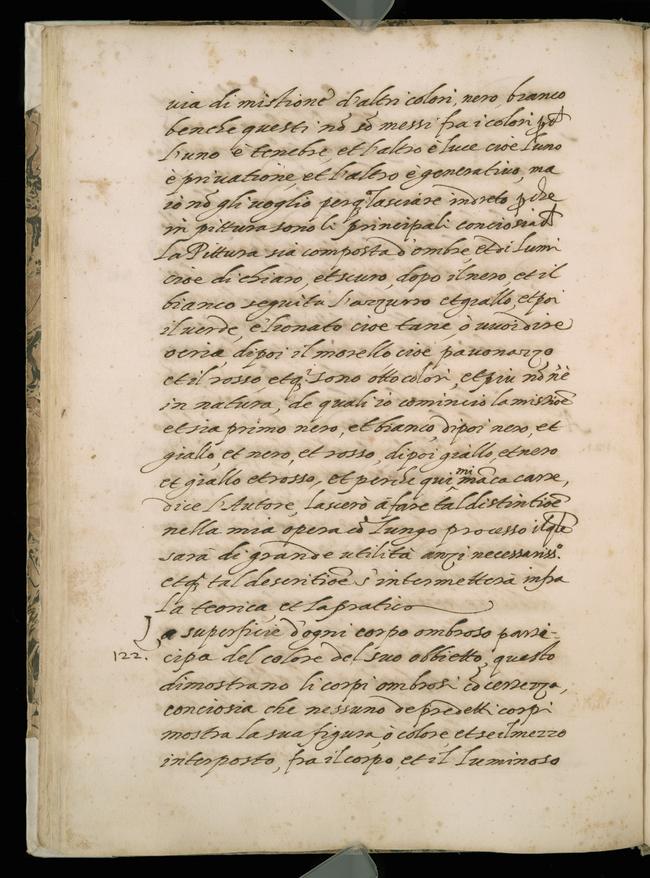 via di mistione d'altri colori, nero, bianco
benche questi nō sō messi fra i colori
l'uno è tenebre, et l'altro è luce cioe l'uno
è privatione, et l'altro è generativo, ma
io nō gli voglio lasciare indreto
in pittura sono li principali conciosia
la Pittura sia composta d'ombre, et di lumi
cioe di chiaro, et scuro, dopo il nero et il
bianco seguita l'azzurro et giallo, et poi
il verde, e lionato cioe tane, ò vuoi dire
ocria, dipoi il morello cioe pavonazzo
et il rosso et sono otto colori, et piu nō n'è
in natura, de quali io comincio la mistioē
et sia primo nero, et bianco, dipoi nero, et
giallo, et nero, et rosso, dipoi giallo, et nero
et giallo et rosso, et perche qui mi māca carte,
dice l'Autore, lascerò à fare tal distintioē
nella mia opera cō lungo processo
sarà di grande utilità anzi necessariss.o
et tal descritioē s'intermetterà infra
la teorica, et la pratica
La superficie d'ogni corpo ombroso parti-
122. cipa del colore del suo obbietto, questo
dimostrano li corpi ombrosi cō certezza,
conciosia che nessuno de predetti corpi
mostra la sua figura, ò colore, et se il mezzo
interposto, fra il corpo, et il luminoso